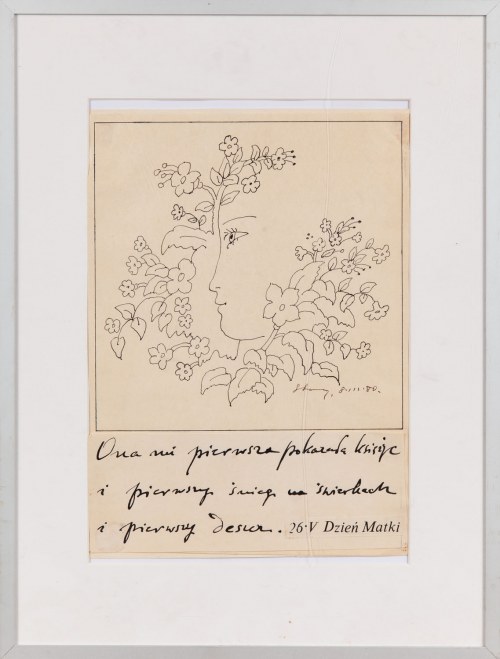 8·III·80.
Ona mi pierwsza pokazała księżyc
i pierwszy śnieg na świerkach
i pierwszy deszcz. 26·V Dzień Matki